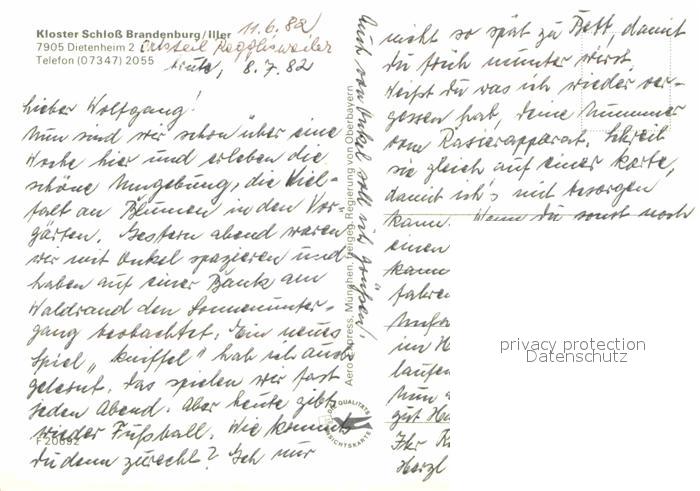 Kloster Schloß Brandenburg/Iller 11.6.82
7905 Dietenheim 2 Ortsteil Regglisweiler
Telefon (07347) 2055
heute, 8.7.82
Lieber Wolfgang!
Nun sind wir schon über eine
Woche hier und erleben die
schöne Umgebung, die Viel-
falt an Blumen in den Vor-
gärten. Gestern abend waren
wir mit Onkel spazieren und
haben auf einer Bank am
Waldrand den Sonnenunter-
gang beobachtet. Ein neues
Spiel „Kniffel" hab ich auch
gelernt, das spielen wir fast
jeden Abend. Aber heute gibts
wieder Fußball. Wie kommst
du denn zurecht? Geh nur
F 20692
Auch von Onkel soll ich grüßen!
Aero-Express, München, freigeg. Regierung von Oberbayern
DIE QUALITÄTS
ANSICHTSKARTE
nicht so spät zu Bett, damit
du früh munter wirst.
Weißt du was ich wieder ver-
gessen hab, deine Nummer
vom Rasierapparat. Schreib
sie gleich auf einer Karte,
damit ich's mit besorgen
kann. Wenn du sonst noch
einen
kann
fahren
im
laufen
Nun
gut
Ihr
Herzl
privacy protection
Datenschutz